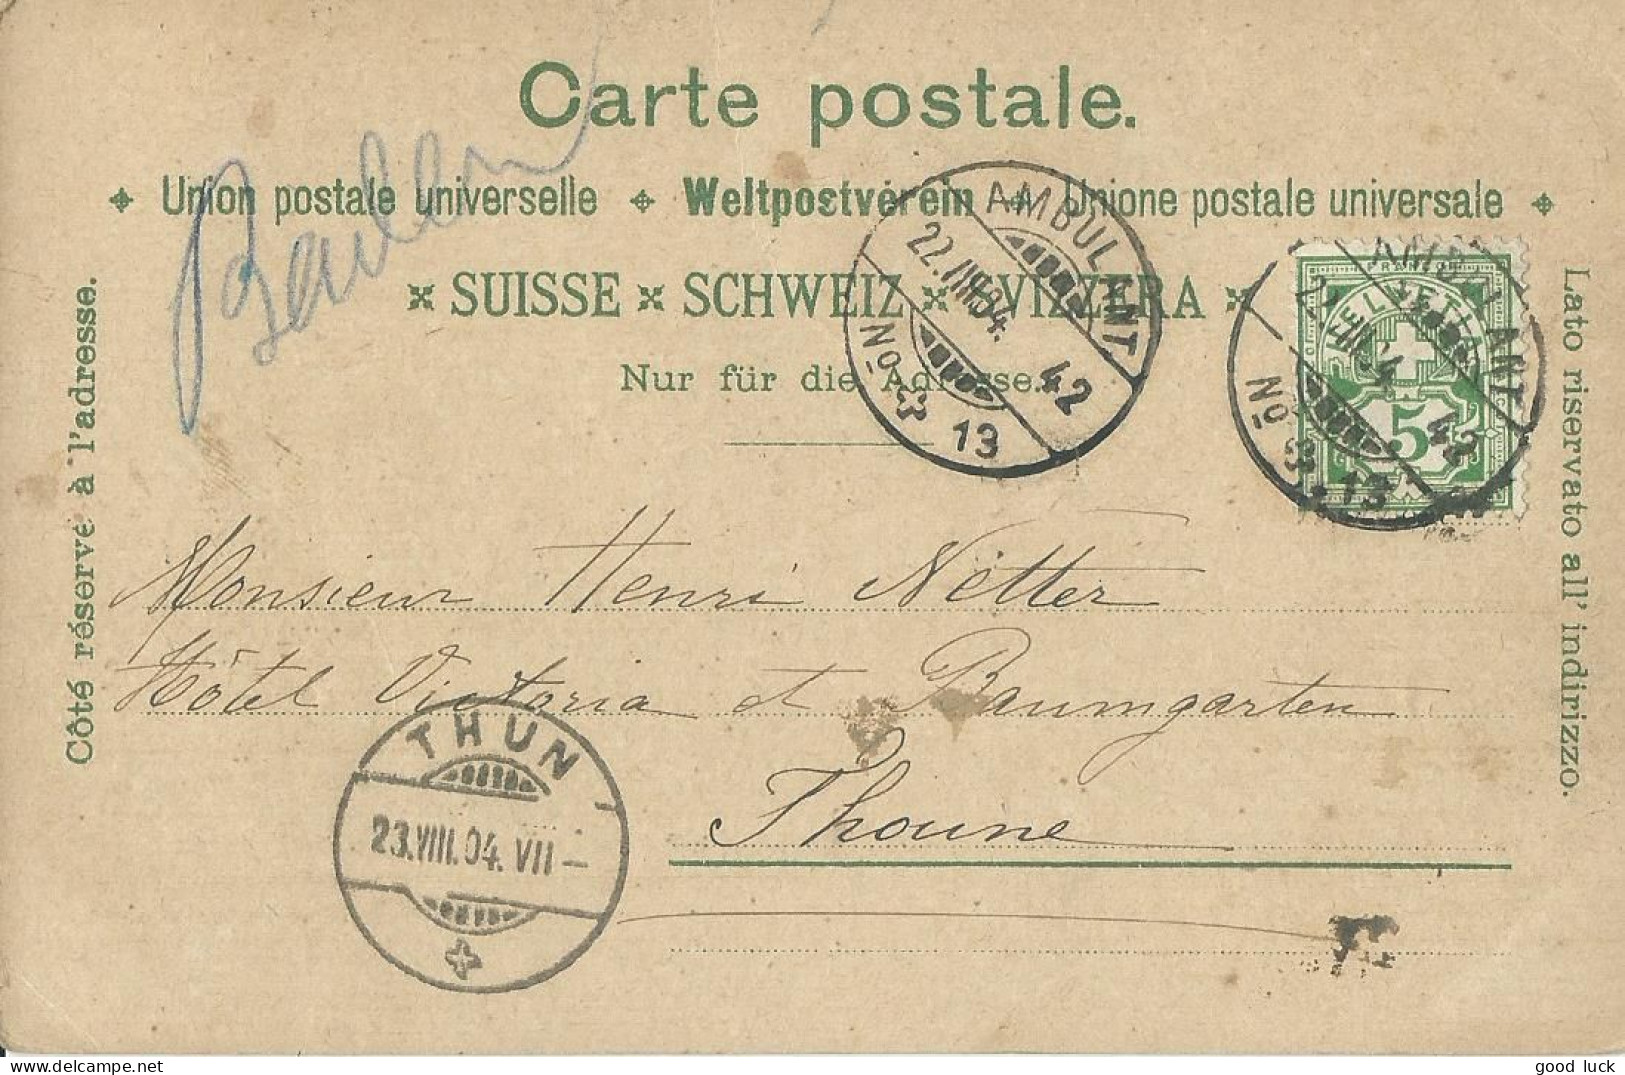 Carte postale.
Union postale universelle Weltpostverein Unione postale universale
SUISSE SCHWEIZ SVIZZERA
Nur für die Adresse.
Côté réservé à l'adresse.
Lato riservato all' indirizzo.
AMBULANT
22.VIII.04. 42
No 13
AMBULANT
22.VIII.04. 42
No 13
FRANCO
HELVETIA
5
Monsieur Henri Netter
Hôtel Victoria et Baumgarten
Thoune
THUN
23.VIII.04.VII-
good luck